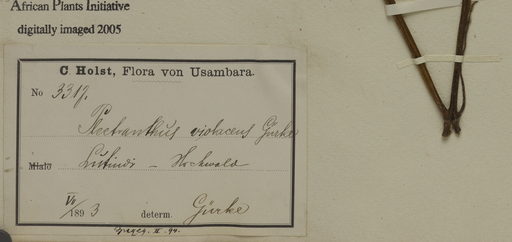 African Plants Initiative
digitally imaged 2005
C Holst, Flora von Usambara.
No 3317.
Plectranthus violaceus Gürke
Mialo Lutindi – Hochwald
VII/1893 determ. Gürke
II. 94.